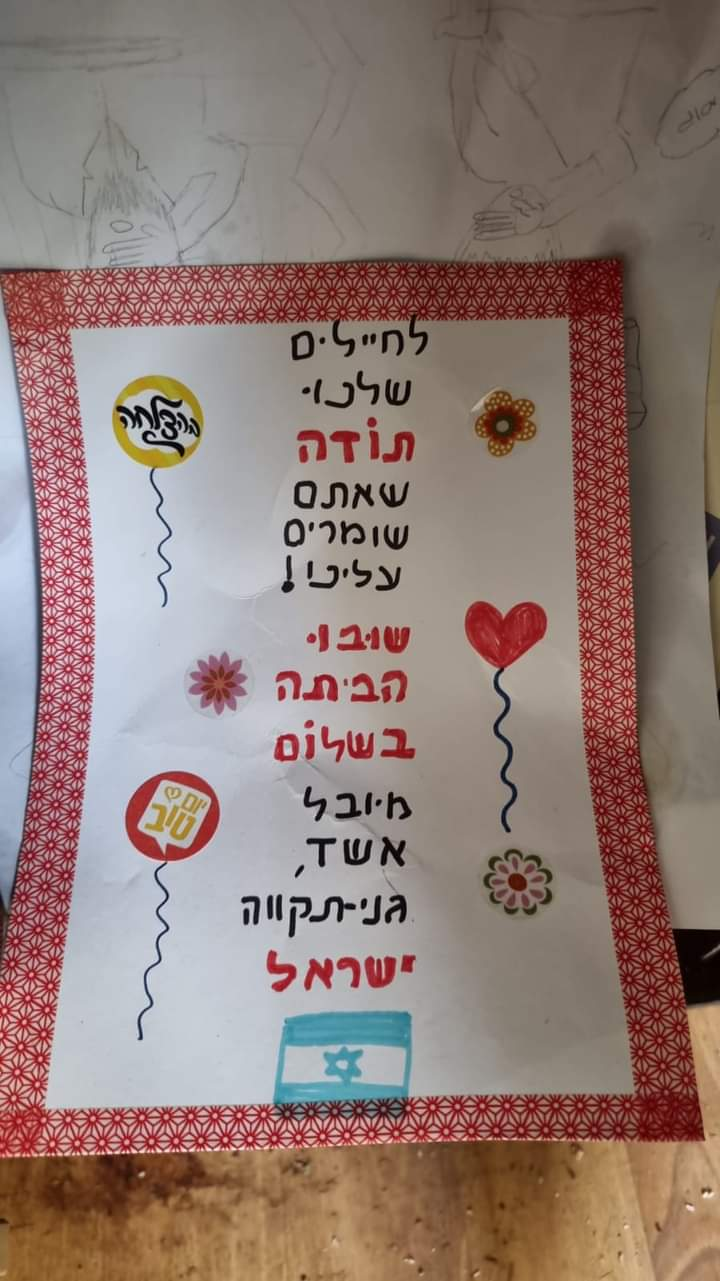 לחיילים
שלנו
תודה
שאתם
שומרים
עלינו!
שובו
הביתה
בשלום
מיובל
אשד,
גני-תקווה
ישראל
בהצלחה
יום
טוב